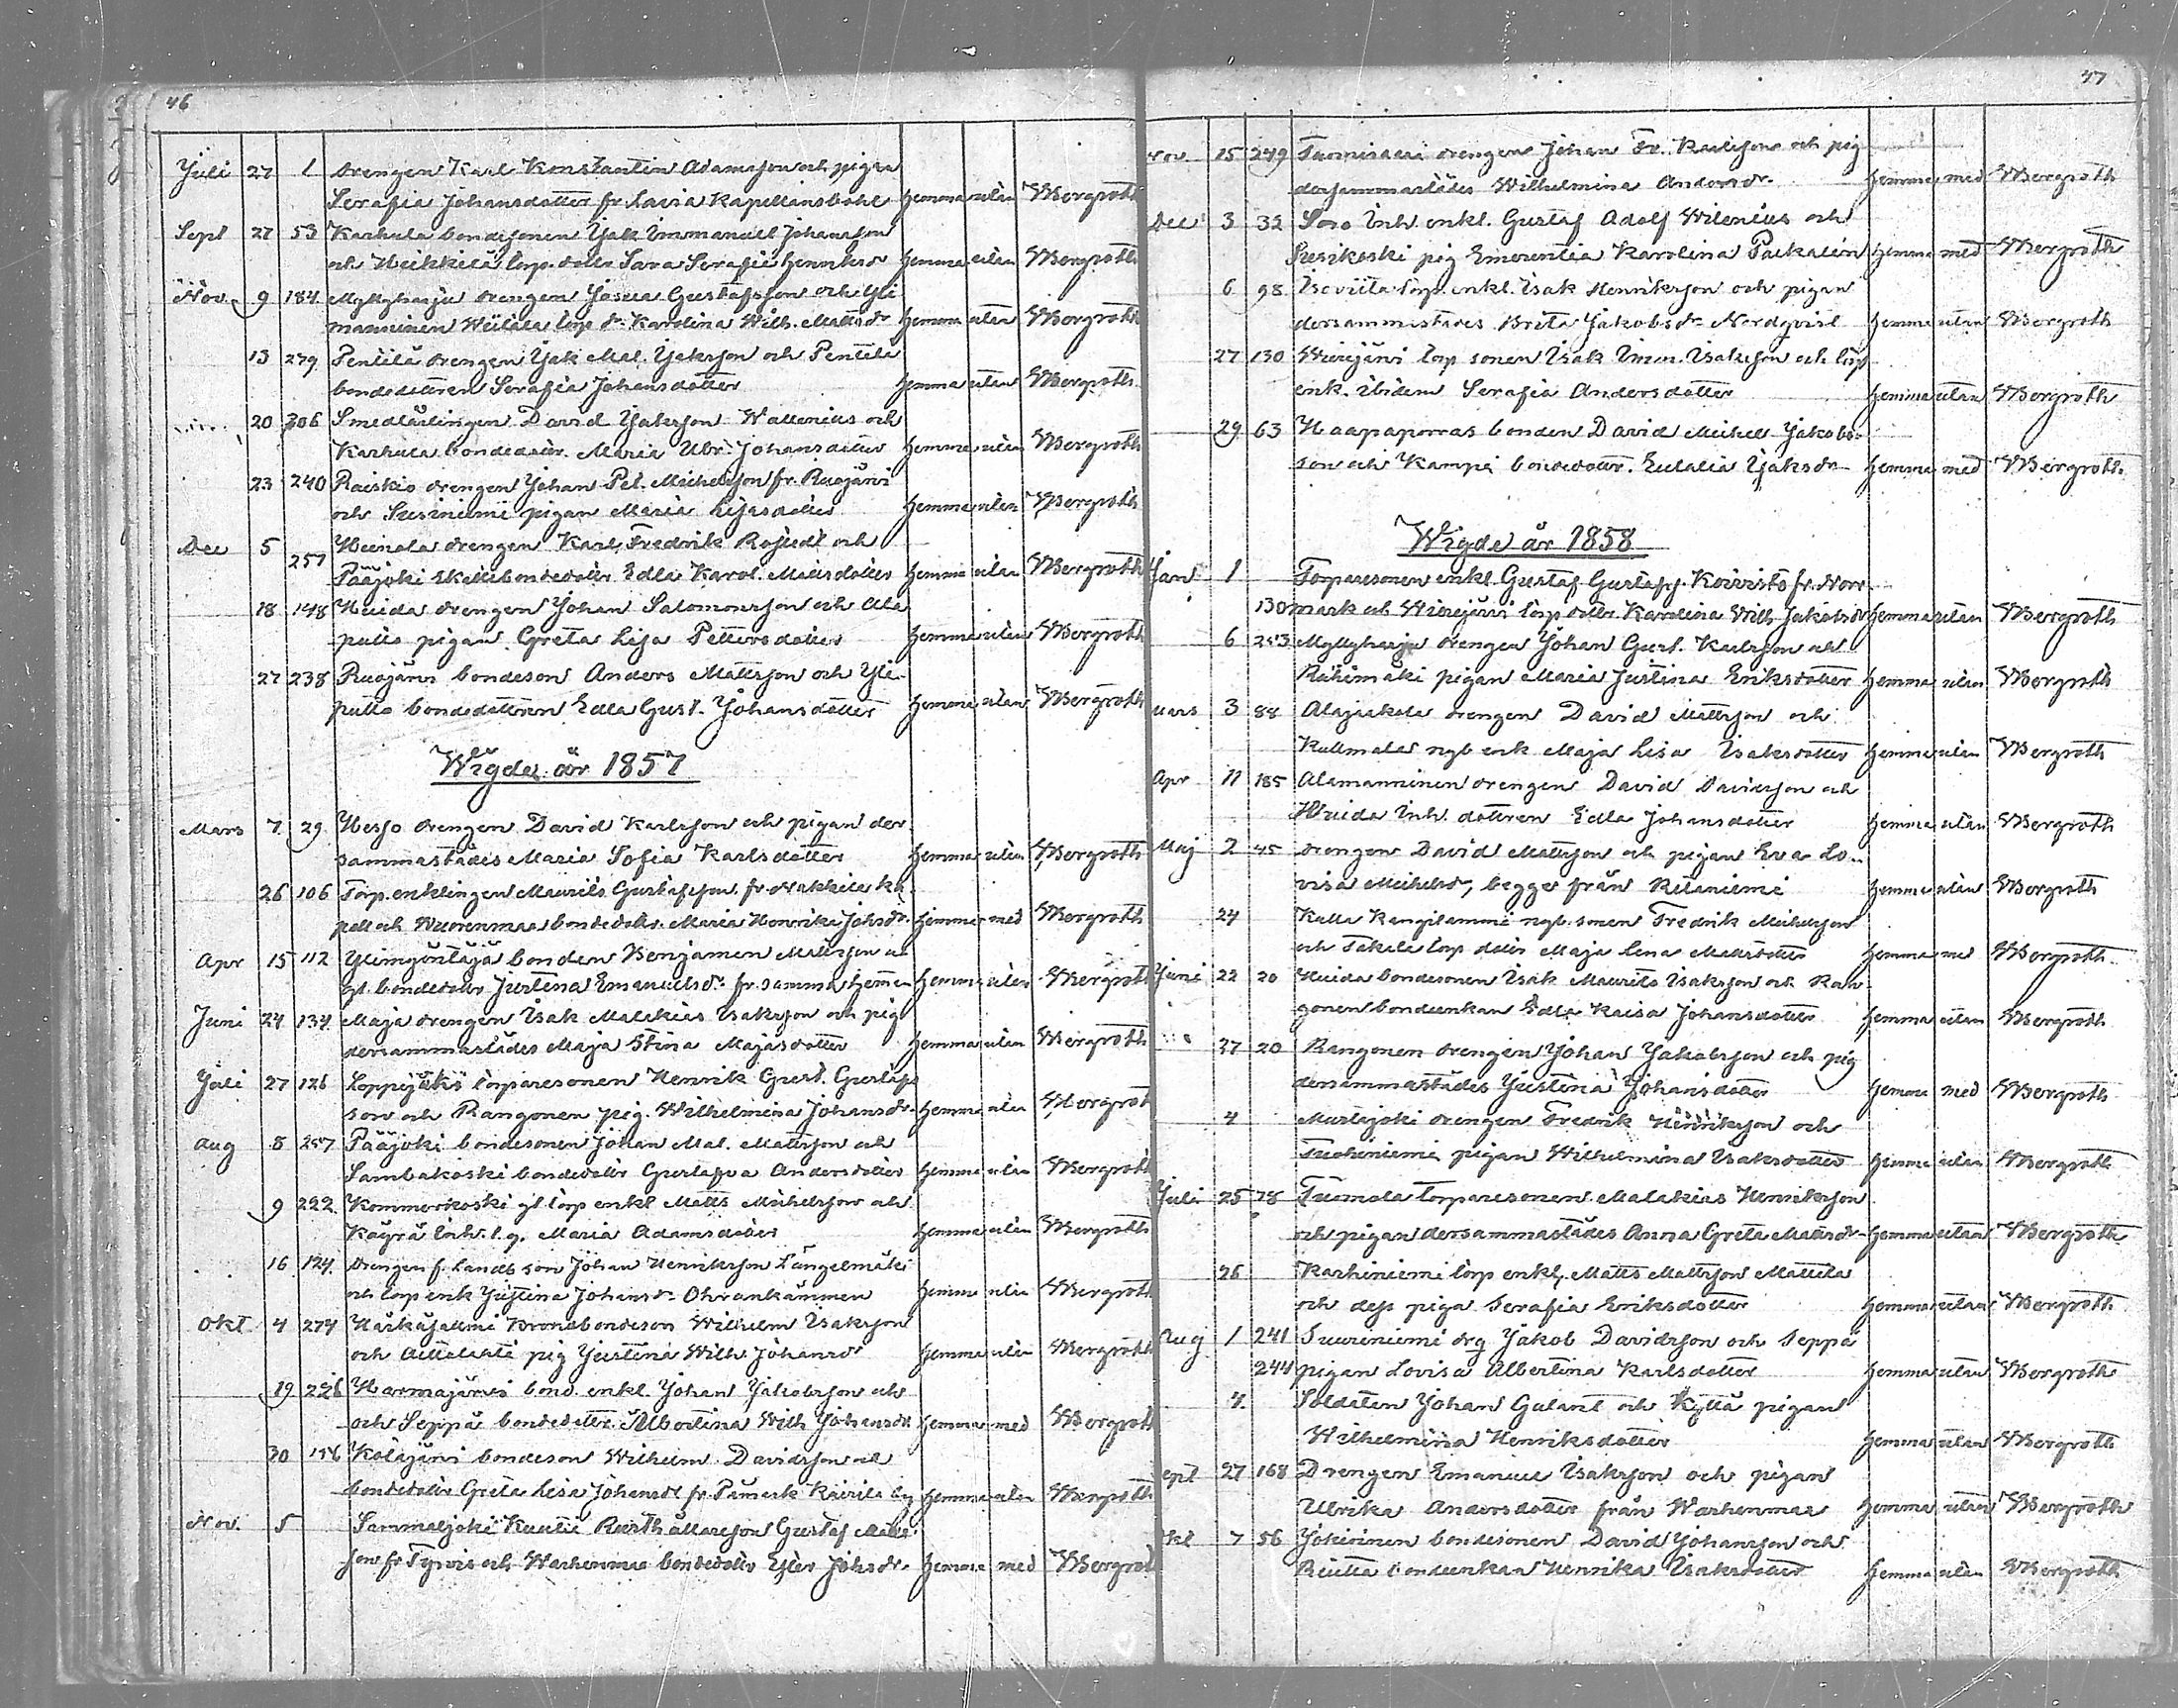 46
Juli 27 1 drengen Karl Konstantin Adamsson och pigan
Serafia Johansdotter fr. Lavia Kapellansbohl hemma utan WBergroth
Sept 27 53 Karhula bondesonen Isak Immanuel Johansson
och Heikkilä torp. dottr Sara Serafia Henriksdr hemma utan WBergroth
Nov. 9 184 Myllyharju drengen Josua Gustafsson och Yli
manninen Wiilala torp dr. Karolina Wilh. Mattsdr hemma utan WBergroth
13 279 Pentilä drengen Isak Mal. Isaksson och Pentilä
bondedottren Serafia Johansdotter hemma utan WBergroth
20 306 Smedlärlingen David Isaksson Wallenius och
Karhula bondedottr. Maria Ulr. Johansdotter hemma utan WBergroth
23 240 Raiskio drengen Johan Pet. Michelsson fr. Ruojärvi
och Susiniemi pigan Maria Lisasdotter hemma utan WBergroth
Dec 5 Heinola drengen Karl Fredrik Rosted och
257 Pääjoki Skattebondedottr Edla Karol. Mattsdotter hemma utan WBergroth
18 148 Huida drengen Johan Salomonsson och Ala
putto pigan Greta Lisa Pettersdotter hemma utan WBergroth
27 238 Ruojärvi bondeson Anders Mattsson och Yli
putto bondedottren Edla Gust. Johansdotter hemma utan WBergroth
Wigde år 1857
Mars 7 29 Hesso drengen David Karlsson och pigan der
sammastädes Maria Sofia Karlsdotter hemma utan WBergroth
26 106 Torp. enklingen Maurits Gustafsson fr. Nakkila ka
pell och Wuorenmaa bondedottr. Maria Henrika Johsdr. hemma med WBergroth
Apr 15 112 bonden Benjamin Mattsson
gl. bondedottr Justina Emanuelsdr. fr. samma hemman hemma utan WBergroth
Juni 24 134 Maja drengen Isak Malakias Isaksson och pig
dersammastädes Maja Stina Majasdotter hemma utan WBergroth
Juli 27 126 Loppijäki torparesonen Henrik Gust. Gustafs
son och Rangonen pig. Wilhelmina Johansdr. hemma utan WBergroth
Aug 8 257 Pääjoki bondesonen Johan Mal. Mattsson och
Sambakoski bondedottr Gustafva Andersdotter hemma utan WBergroth
9 222 Kommerkoski gl torp enkl Matts Michelsson och
Käyrä Inh. t. g. Maria Adamsdotter hemma utan WBergroth
16 124 drengen f. landb son Johan Henriksson Längelmäki
och torp enk Justina Johansdr. hemma utan WBergroth
Okt 4 274 Härkäjalmi Kronobondeson Wilhelm Isaksson
och pig Justina Wilh. Johansdr hemma utan WBergroth
19 226 Harmajärvi bond. enkl. Johan Jakobsson och
och Seppä bondedottr Albertina Wilh Johansdr hemma med WBergroth
30 156 Kolajärvi bondeson Wilhelm Davidsson och
bondedottr Greta Lisa Johansdr fr. Påmark hemma utan WBergroth
Nov. 5 Sammaljoki Kuutti Rusthållarsson Gustaf Matts
son fr Tyrvis och Warhenmaa bondedottr Ester Johsdr. hemma med WBergroth
47
Nov. 15 249 drengen Johan Fr. Karlsson och pig
dersammastädes Wilhelmina Andersdr. hemma med WBergroth
Dec 3 32 Soro Inh. enkl. Gustaf Adolf Wilenius och
Susikoski pig Emerentia Karolina Packalén hemma med WBergroth
6 98 Isoviita torp. enkl. Isak Henriksson och pigan
dersammastädes Brita Jakobsdr. Nordqvist hemma utan WBergroth
27 130 Wirrejärvi torp sonen Isak Imm. Isaksson och torp
enk. ibidem Serafia Andersdotter hemma utan WBergroth
29 63 Haapaporras bonden David Michel Jakobs-
son och Kampi bondedottr. Eulalia Isaksdr. hemma med WBergroth
Wigde år 1858
Jan 1 Torparesonen enkl. Gustaf Gustafs. Koivisto fr. Norr
130 mark och Wirrejärvi torp dottr Karolina Wilh Jakobsdr hemma utan WBergroth
6 253 Myllyharju drengen Johan Gust. Karlsson och
Rähimäki pigan Maria Justina Eriksdotter hemma utan WBergroth
Mars 3 88 Alajaakola drengen David Mattsson och
Kullmala nyb enk Maja Lisa Isaksdotter hemma utan WBergroth
Apr 11 185 Alamanninen drengen David Davidsson och
Huida Inh. dottren Edla Johansdotter hemma utan WBergroth
Maj 2 45 drengen David Mattsson och pigan Eva Lo-
visa Michelsdr, begge från Ritaniemi hemma utan WBergroth
24 Kulla Kangilammi nyb. sonen Fredrik Michelsson
och Takala torp dottr Maja Lena Mattsdotter hemma med WBergroth
Juni 22 20 Huida bondesonen Isak Maurits Isaksson och Ran
gonen bondeenkan Edla Kaisa Johansdotter hemma utan WBergroth
27 20 Rangonen drengen Johan Jakobsson och pig
dersammastädes Justina Johansdotter hemma med WBergroth
4 Murtojoki drengen Fredrik Henriksson och
pigan Wilhelmina Isaksdotter hemma utan WBergroth
Juli 25 78 Tuomola torparesonen Malakias Henriksson
och pigan dersammastädes Anna Greta Mattsdr. hemma utan WBergroth
26 Karhiniemi torp enkl. Matts Mattsson Mattila
och dess piga Serafia Eriksdotter hemma utan WBergroth
Aug 1 241 Suuriniemi drg Jakob Davidsson och Seppä
244 pigan Lovisa Albertina Karlsdotter hemma utan WBergroth
4 Soldaten Johan Galant och Kyttä pigan
Wilhelmina Henriksdotter hemma utan WBergroth
ept 27 168 Drengen Emanuel Isaksson och pigan
Ulrika Andersdotter från Warhenmaa hemma utan WBergroth
kt 7 56 Jokioinen bondesonen David Johansson och
bondeenkan Henrika Isaksdotter hemma utan WBergroth